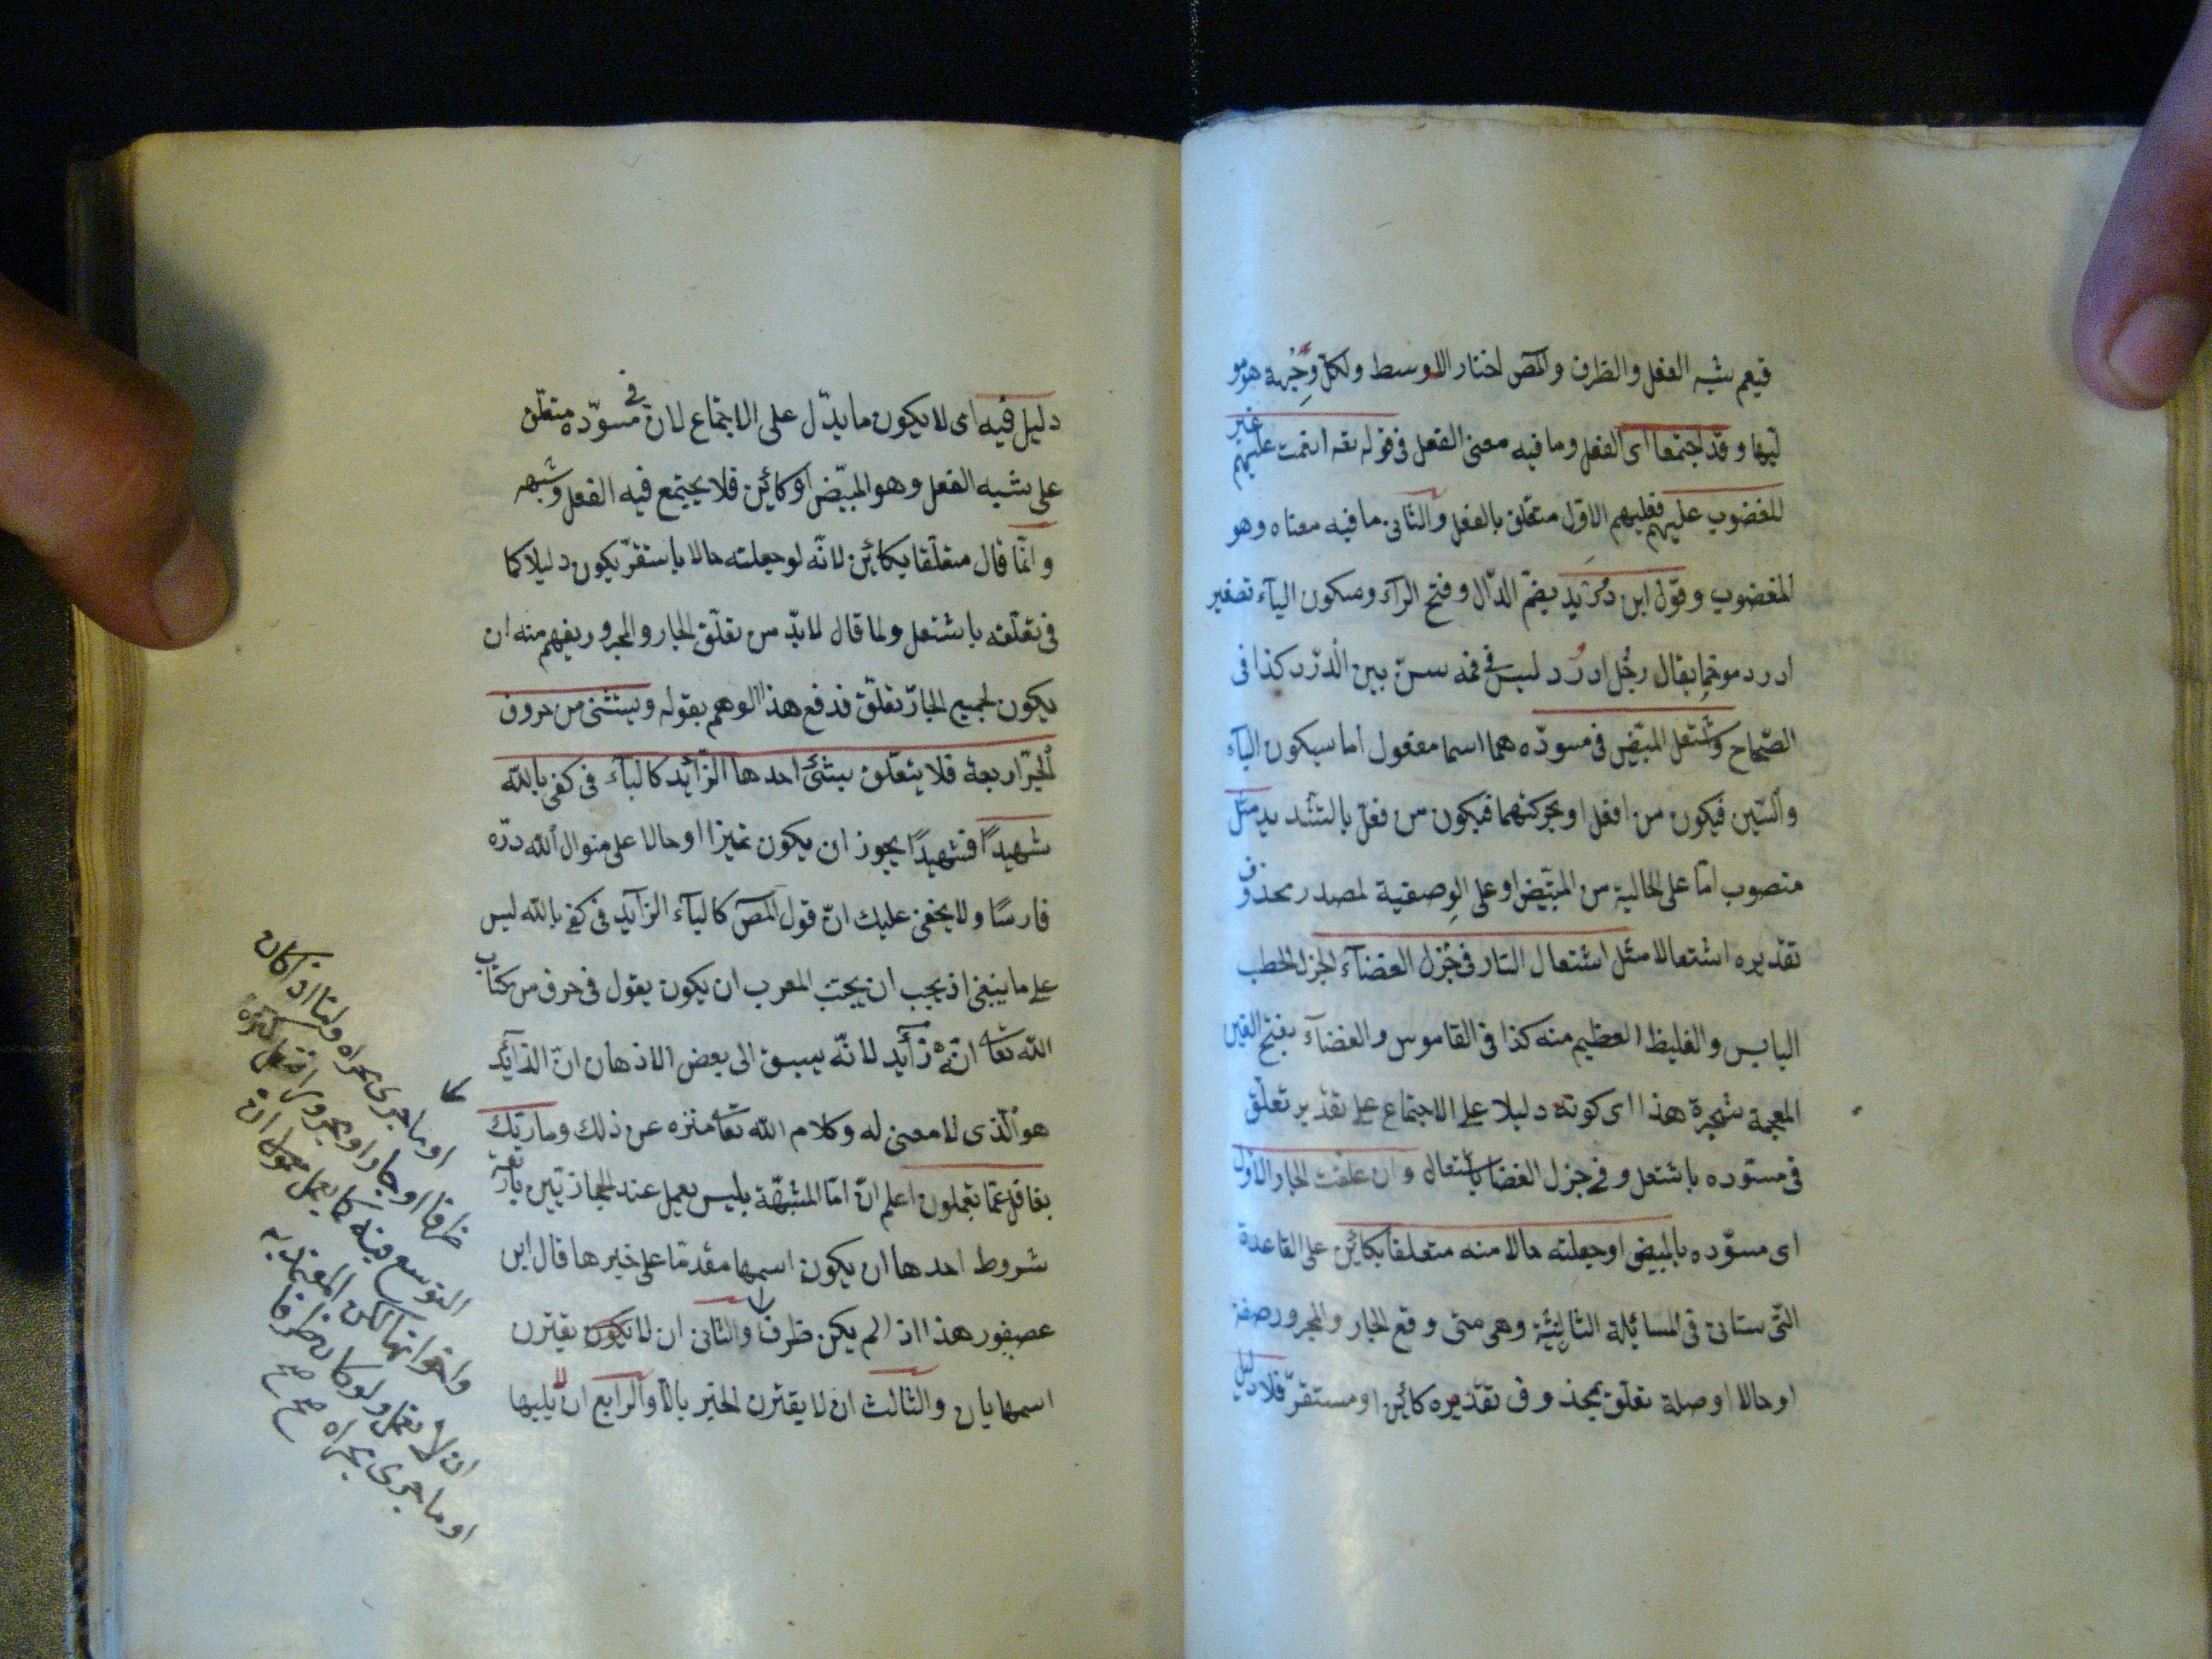 فيعم شبه الفعل والظرف والمص اختار الاوسط ولكل وجهة هو مو
ليها وقد اجتمعا اى الفعل وما فيه معنى الفعل فى قوله تعه انعمت عليهم غير
المغضوب عليهم فعليهم الاول متعلق بالفعل والثانى ما فيه معناه وهو
المغضوب وقول ابن دُرَيد بضم الدّال وفتح الرآء وسكون اليآء تصغير
ادرد مرخما يقال رجُل ادرد ليس فى فمه سن بين الدّرد كذا فى
الصّحاح واشتعل المبيّض فى مسودّه هما اسما مفعول اما بسكون اليآء
والسّين فيكون من افعل او بحركتهما فيكون من فعّل بالتشديد مثل
منصوب امّا على الحالية من المبيّض او على الوصفية لمصدر محذوف
تقديره اشتعالا مثل اشتعال النار فى جزل الغضآء الجزل الحطب
اليابس والغليظ العظيم منه كذا فى القاموس والغضآء بفتح الغين
المعجمة شجرة هذا اى كونه دليلا على الاجتماع على تقدير تعلّق
فى مسوّده باشتعل وفى جزل الغضا باشتعال وان علقت الجار الاول
اى مسوّده بالمبيض او جعلته حالا منه متعلقا بكائن على القاعدة
التّى ستاتى فى المسائلة الثالثة وهى متى وقع الجار والمجرور صفة
او حالا او صلة تعلّق بمحذوف تقديره كائن او مستقرّ فلا دليل
دليل فيه اى لا يكون ما يدّل على الاجتماع لان فى مسوّده متعلّق
على شبه الفعل وهو المبيّض او كائن فلا يجتمع فيه الفعل وشبهه
وانّما قال متعلّقا بكائن لانّه لو جعلته حالا باستقرّ يكون دليلا كما
فى تعلّقه باشتعل ولما قال لا بدّ من تعلّق الجار والمجرور يفهم منه ان
يكون لجميع الجارّ تعلّق فدفع هذا الوهم بقوله ويستثنى من حروف
الجرّ اربعة فلا يتعلّق بشئ احدها الزّائد كالبآء فى كفى بالله
شهيدًا فشهيدًا يجوز ان يكون تميزا او حالا على منوال لله درّه
فارسًا ولا يخفى عليك انّ قول المص كالبآء الزآيد فى كفى بالله ليس
على ما ينبغى اذ يجب ان يجتنب المعرب ان يكون يقول فى حرف من كتاب
الله تعا انّه زآئد لانّه يسبق الى بعض الاذهان انّ الزآئد
هو الّذى لا معنى له وكلام الله تعا منزه عن ذلك وما ربّك
بغافل عمّا تعملون اعلم انّ امّا المشبّهة بليس يعمل عند الحجازيّين باربعة
شروط احدها ان يكون اسمها مقدمّا على خيرها قال ابن
عصفور هذا اذا لم يكن ظرفا والثانى ان لا يكون يقترن
اسمها بان والثالث ان لا يقترن الخبر بالّا والرابع ان يليها
او ما جرى مجراه وامّا اذا كان
ظرفا او جارا ومجرورا فتعمل لكثرة
التوسع فيه كما يعمل معمول انّ
واخواتها لكن المعتمد به
ان لا تعمل ولو كان ظرفا
او ما جرى مجراه صح صح